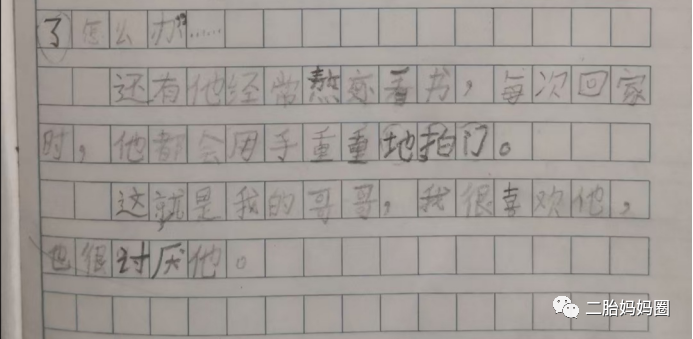 了怎么办”……
还有他经常熬夜看书，每次回家
时，他都会用手重重地拍门。
这就是我的哥哥，我很喜欢他，
也很讨厌他。
二胎妈妈圈